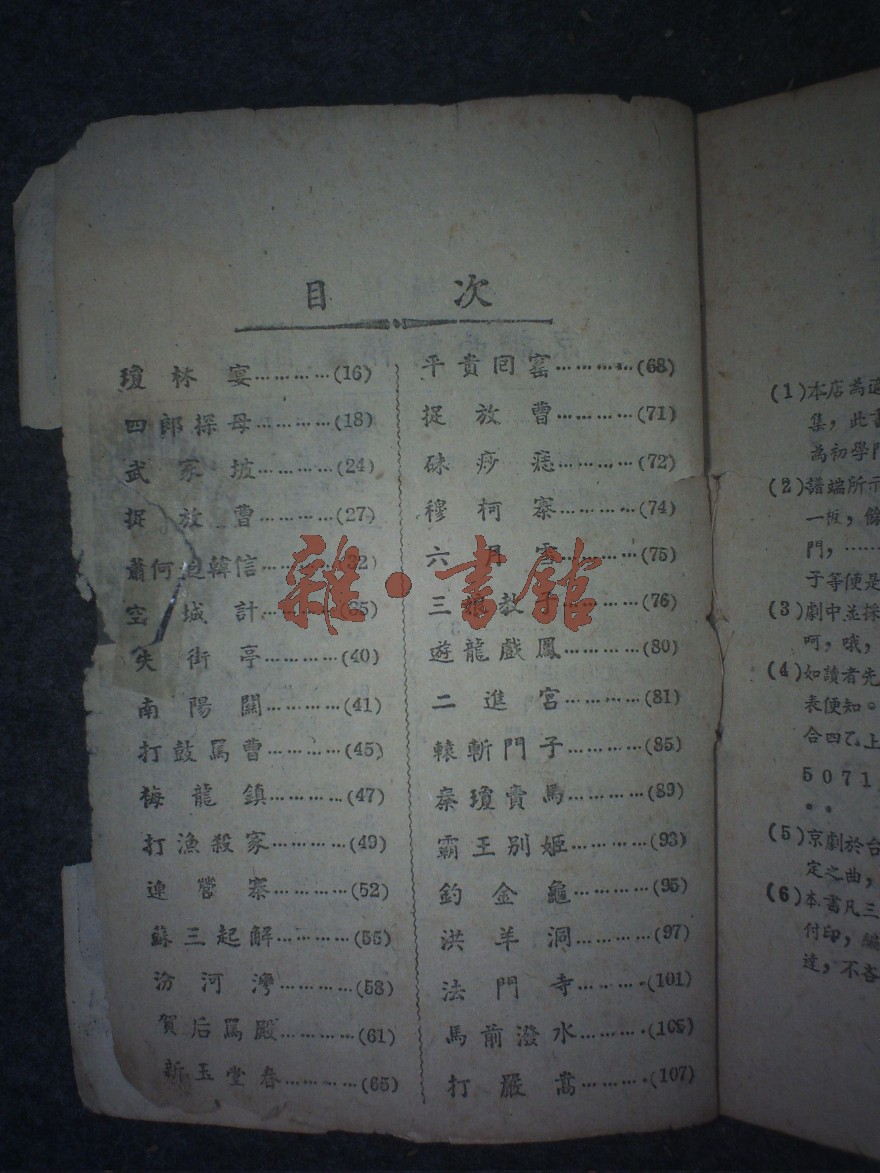 目 次
瓊林宴…………(16)
四郎探母…………(18)
武家坡…………(24)
捉放曹…………(27)
蕭何追韓信…………(32)
空城計…………(35)
失街亭…………(40)
南陽關…………(41)
打鼓罵曹…………(45)
梅龍鎮…………(47)
打漁殺家…………(49)
連營寨…………(52)
蘇三起解…………(55)
汾河灣…………(58)
賀后罵殿…………(61)
新玉堂春…………(65)
平貴回窰…………(68)
捉放曹…………(71)
硃痧痣…………(72)
穆柯寨…………(74)
六月雪…………(75)
三娘敎子…………(76)
遊龍戲鳳…………(80)
二進宮…………(81)
轅斬門子…………(85)
秦瓊賣馬…………(89)
霸王别姬…………(93)
釣金龜…………(95)
洪羊洞…………(97)
法門寺…………(101)
馬前潑水…………(105)
打嚴嵩…………(107)
雜·書館
(1)本店為
集，此書
為初學門
(2)譜端所示
一板，餘
門，……
子等便是
(3)劇中並採
呵，哦，
(4)如讀者先
表便知。
合四乙上
5071
(5)京劇於台
定之曲，
(6)本書凡三
付印，編
達，不吝